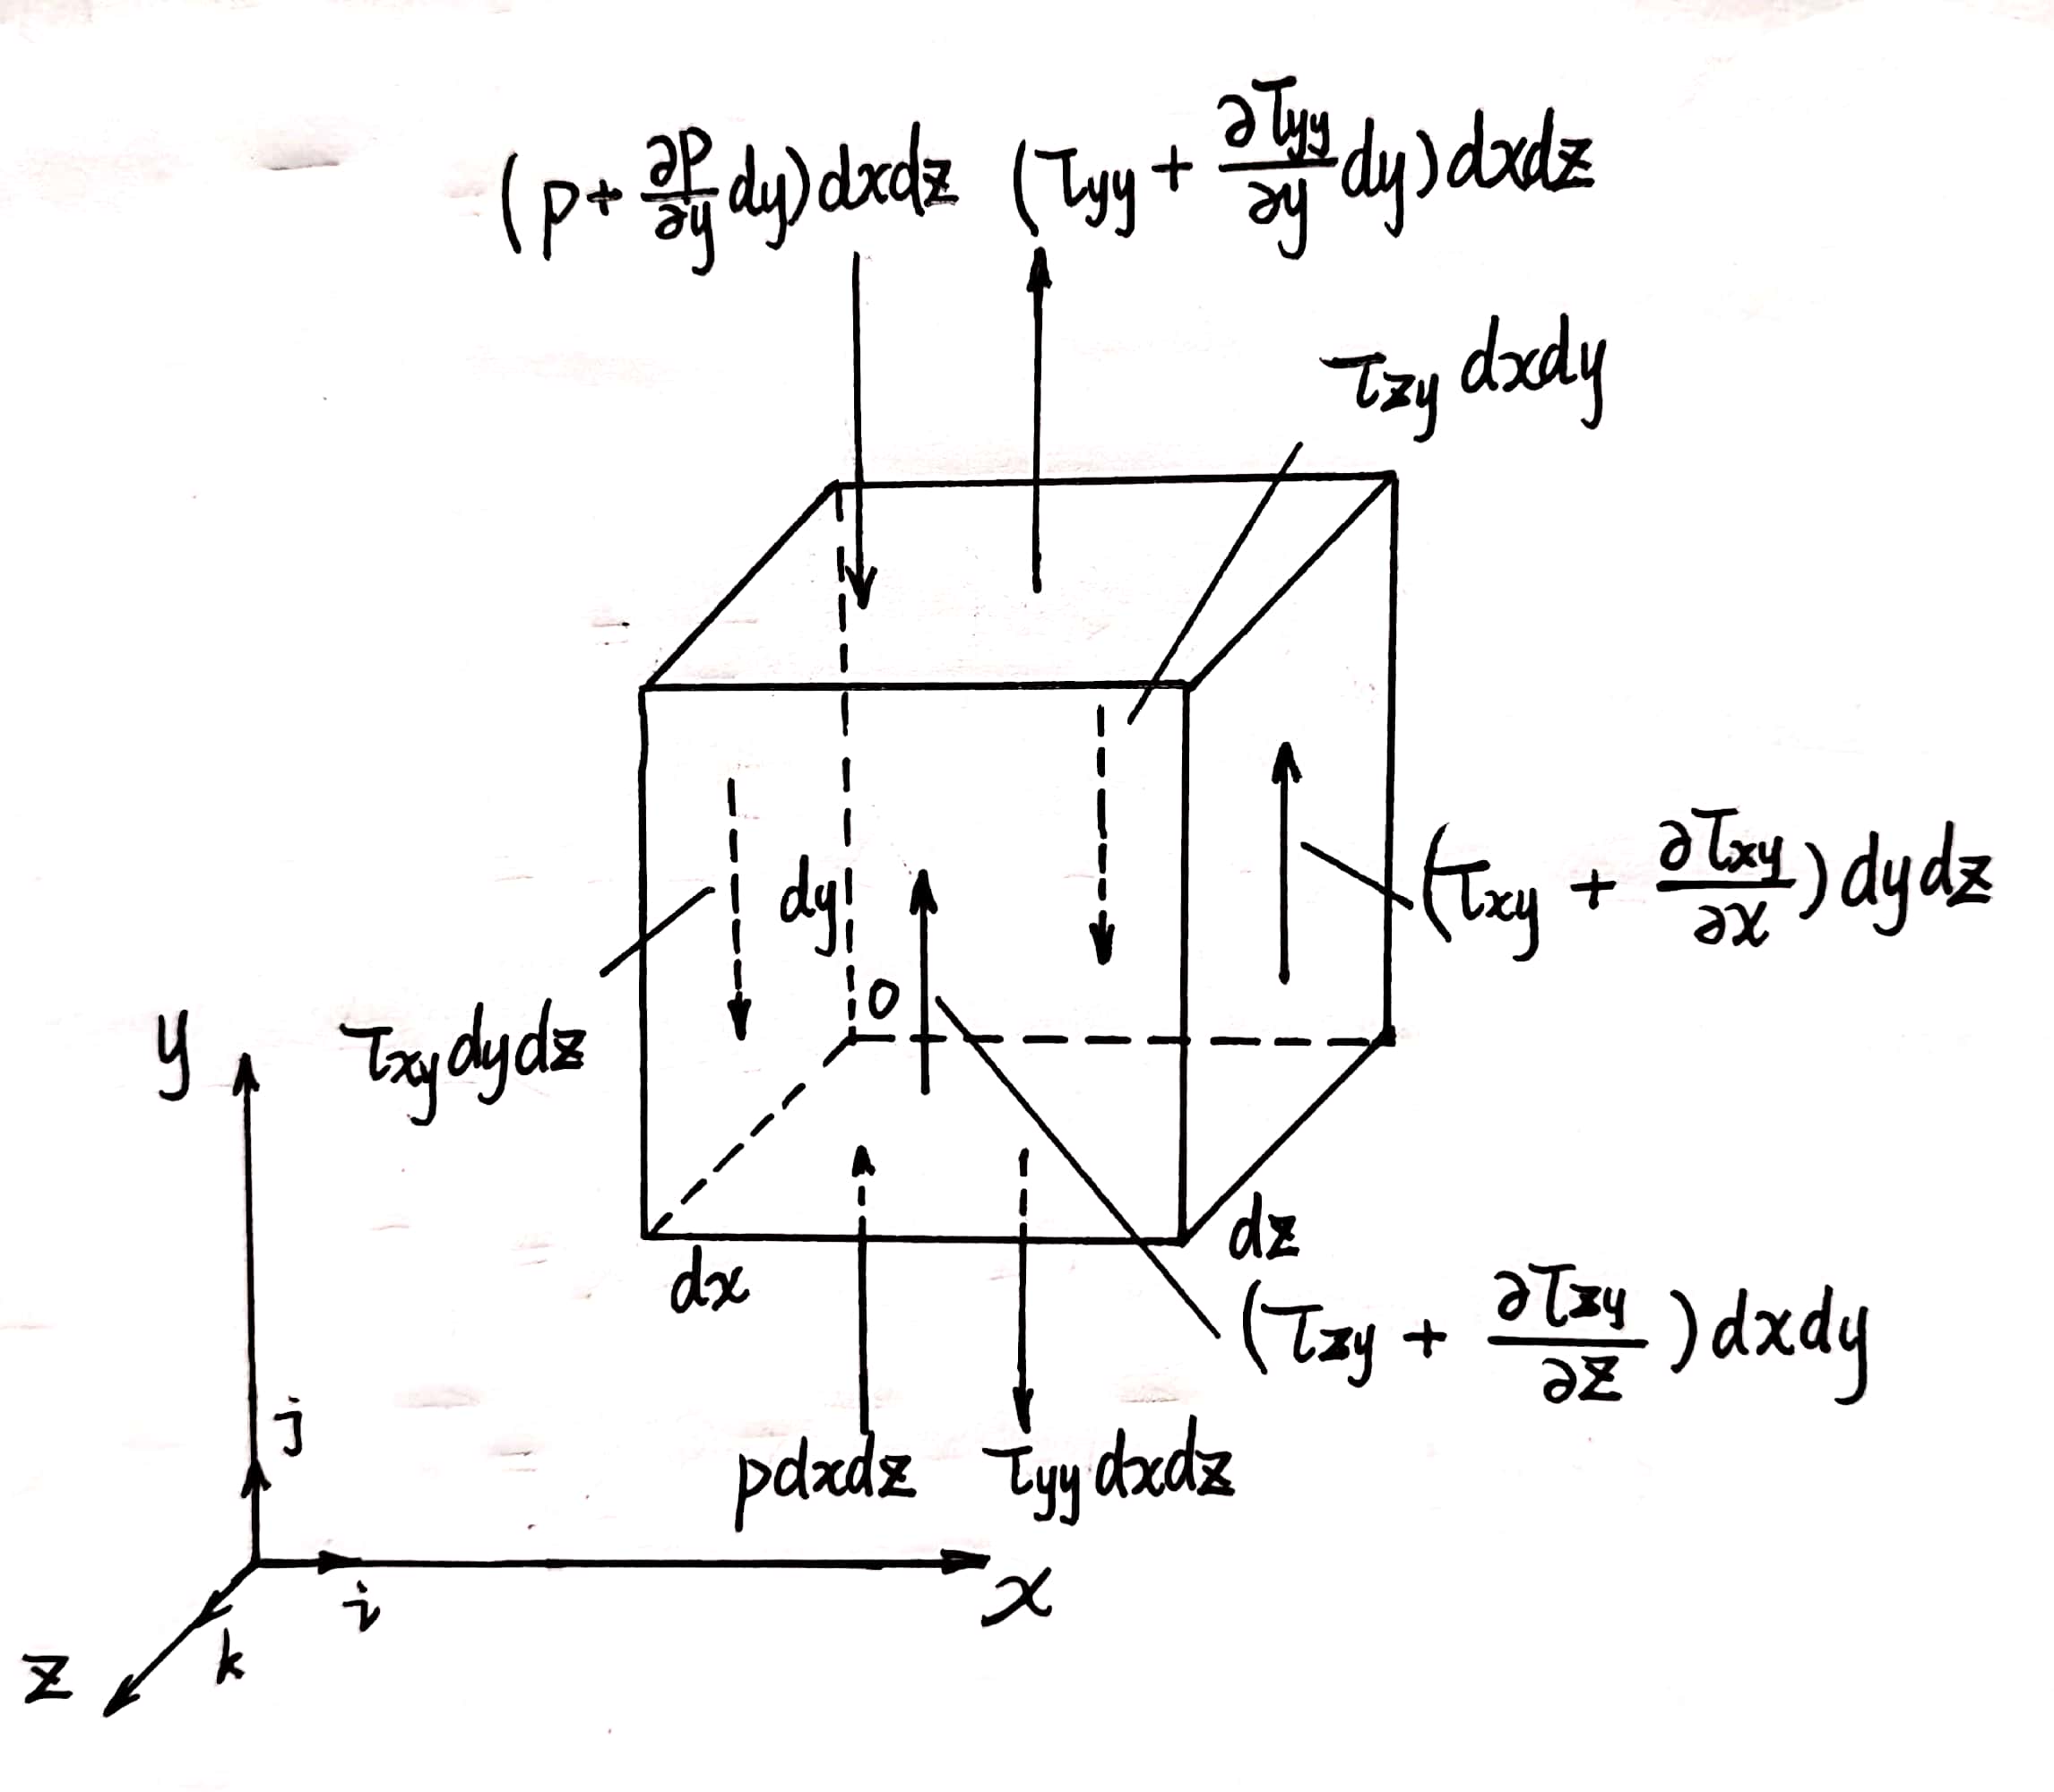 (p + ∂p/∂y dy) dxdz (τyy + ∂τyy/∂y dy) dxdz
τzy dxdy
dy
(τxy + ∂τxy/∂x) dydz
O
y
τxy dydz
dz
dx
(τzy + ∂τzy/∂z) dxdy
j
pdxdz τyy dxdz
x
i
k
z